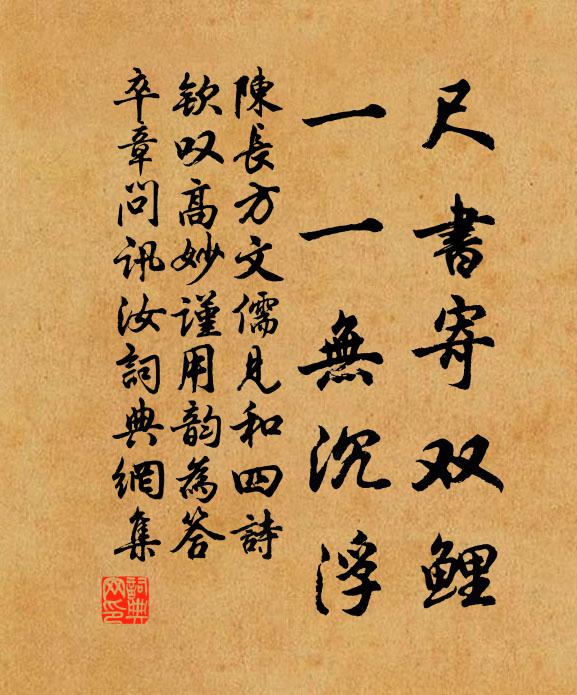 尺書寄双鲤
一一無沉浮
陳長方文儒見和四詩
欽叹高妙謹用韵為答
卒章問讯汝詞典網集
詞典网印